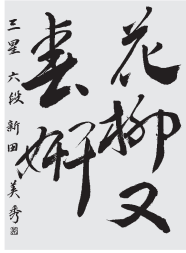 花柳又
春妍
三星 六段 新田 美秀